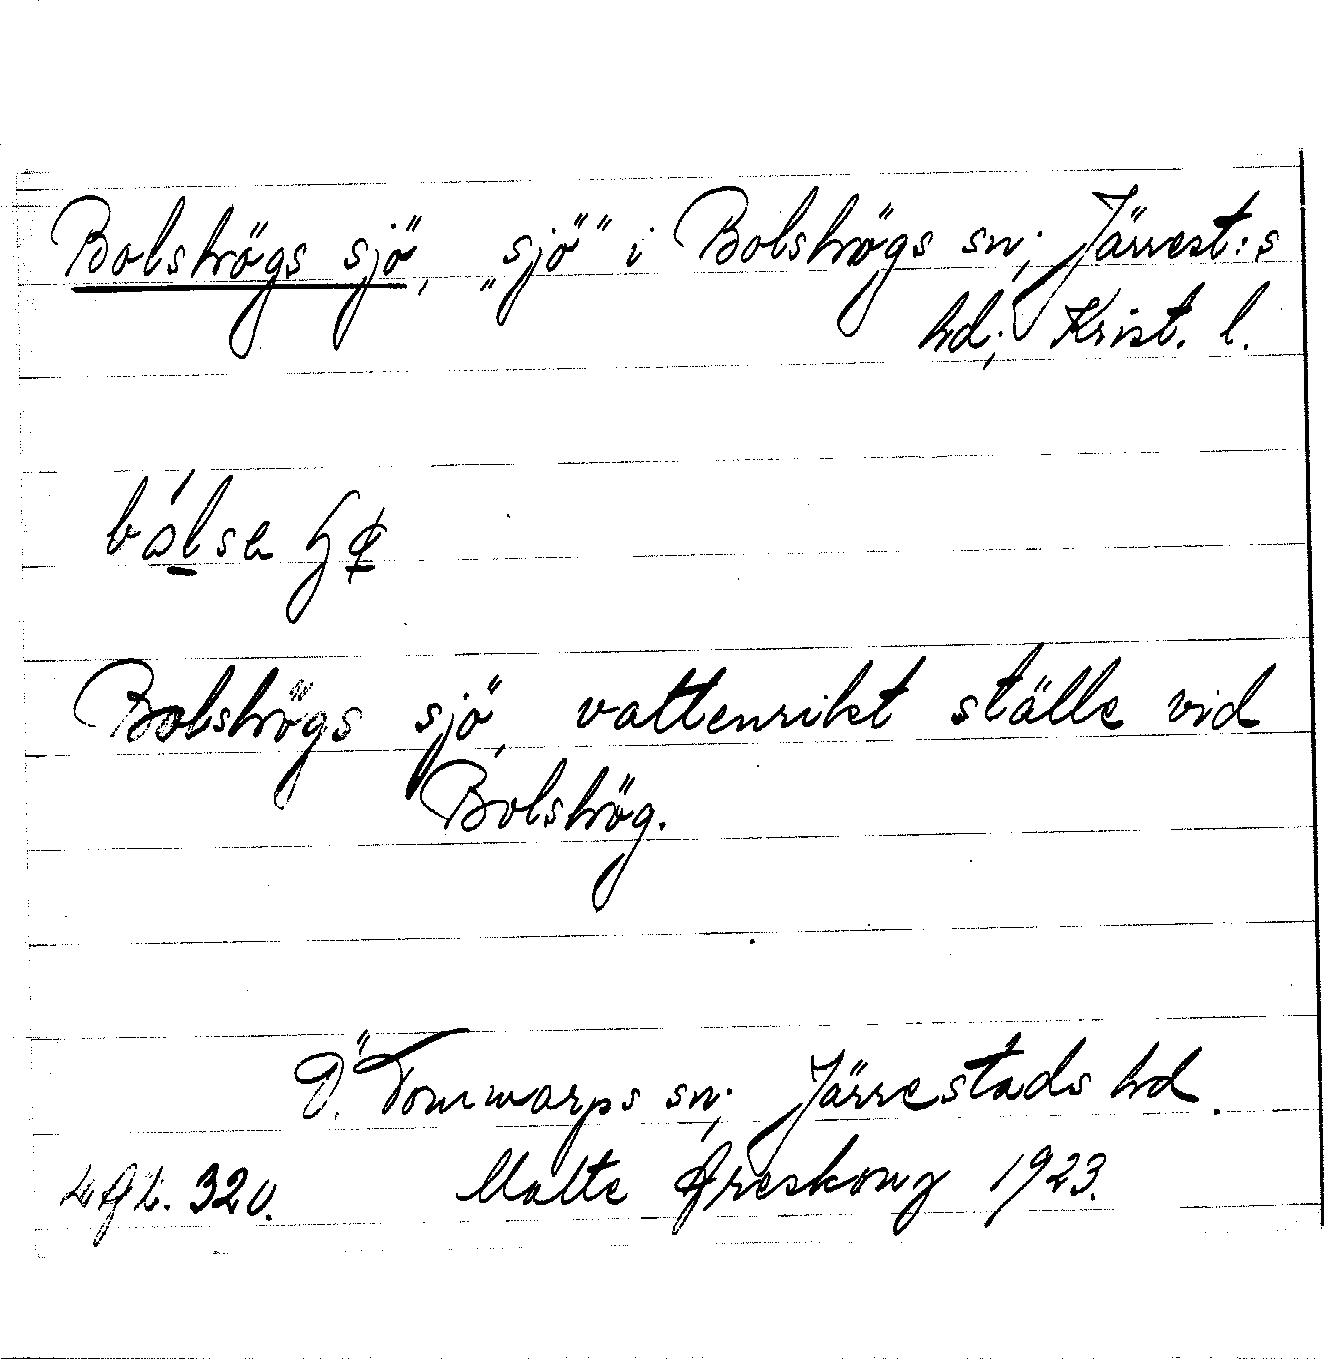 Bolshögs sjö, „sjö” i Bolshögs sn; Järrest:s
hd; Krist. l.
Bolshögs sjö, vattenrikt ställe vid
Bolshög.
Ö. Tommarps sn; Järrestads hd.
320. Malte Areskoug 1923.